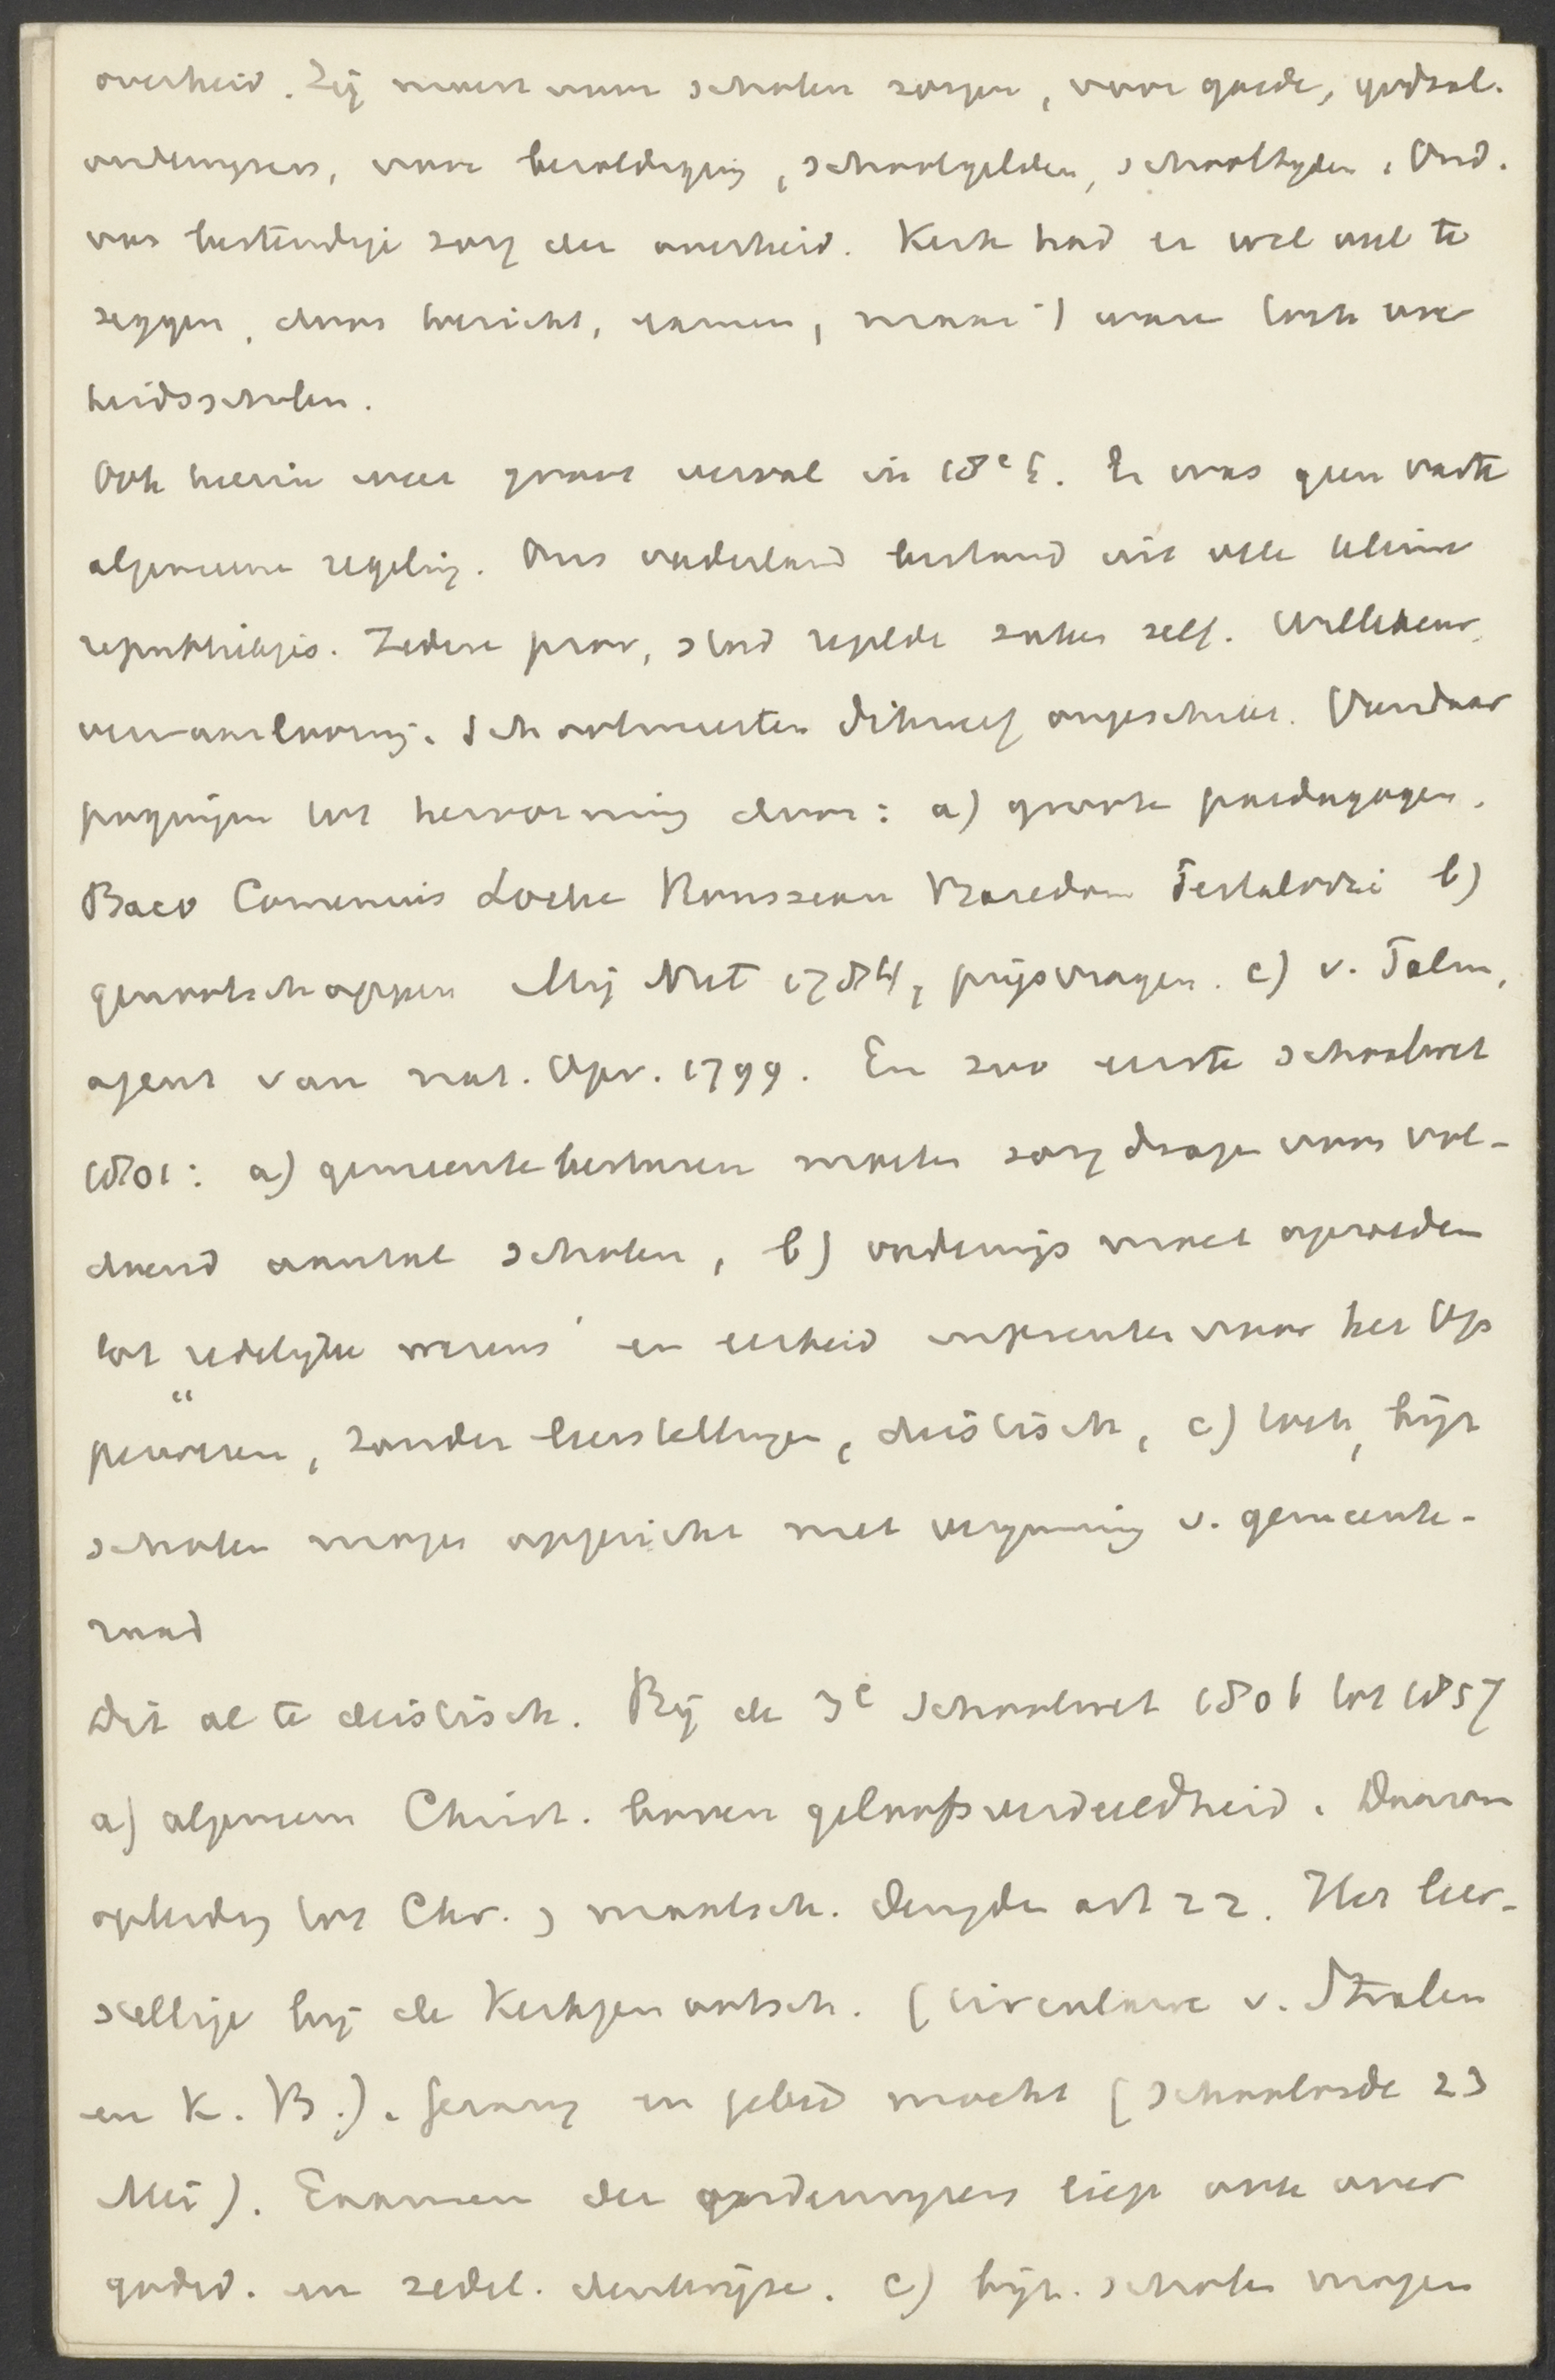 overheid. Zij moest voor scholen zorgen, voor goede, godzal.
onderwijzers, voor bezoldiging, schoolgelden, schooltyden. Ond.
was bestendige zorg der overheid. Kerk had er wel veel te
zeggen, door toezicht, examen, maar 't waren toch over
heidsscholen.
Ook hierin weer groot verval in 18e E. Er was geen vaste
algemeene regeling. Ons vaderland bestond uit vele kleine
republiekjes. Iedere prov, stad regelde zaken zelf. Willekeur,
verwaarloozing. Schoolmeesters dikwerf ongeschikt. Vandaar
pogingen tot hervorming door: a) groote paedagogen.
Baco Comenius Locke Rousseau Basedow Pestalozzi b)
genootschappen Mij Nut 1784, prijsvragen. c) v. Palm,
agent van nat. Opv. 1799. En zoo eerste schoolwet
1801: a) gemeentebesturen moeten zorg dragen voor vol-
doend aantal scholen, b) onderwijs moet opvoeden
tot redelijke wezens' en eerbied inprenten voor het Op
"
perwezen, zonder leerstellingen, deistisch, c) toch, bijz
scholen mogen opgericht met vergunning v. gemeente-
raad
Dit al te deistisch. Bij de 3e schoolwet 1806 tot 1857
a) algemeen Christ. boven geloofsverdeeldheid. Daarom
opleiding tot Chr. & maatsch. deugden art 22. Het leer-
stellige bij de Kerkgenootsch. (circulaire v. Stralen
en K. B.). Gezang en gebed mocht (schoolorde 23
Mei). Examen der onderwijzers liep ook over
godsd. en zedel. denkwijze. c) bijz. scholen mogen